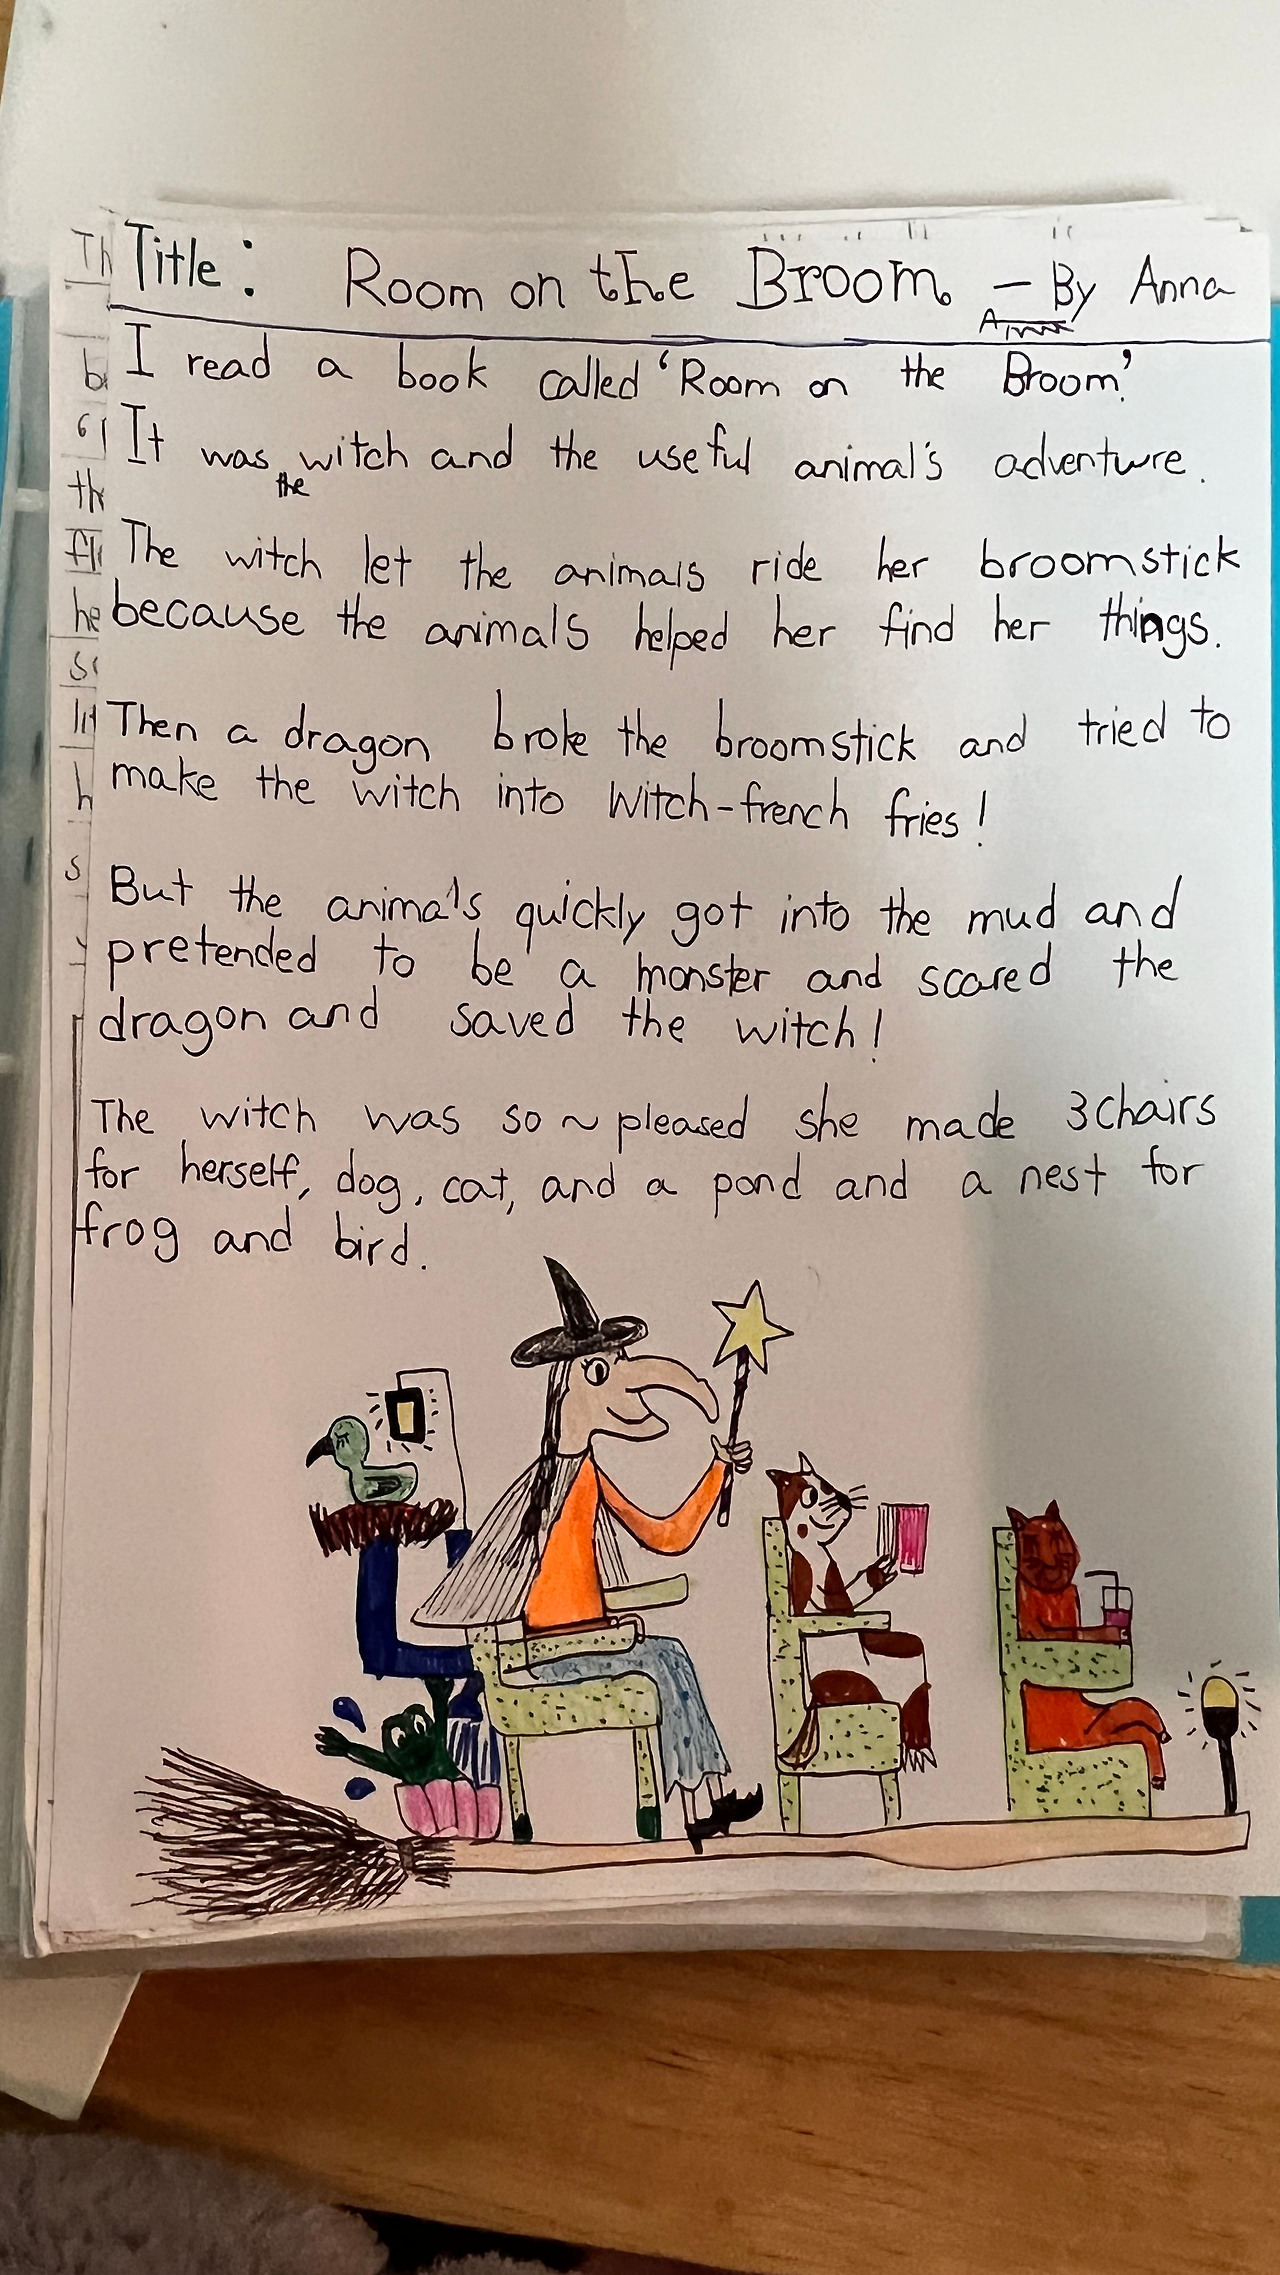 Title: Room on the Broom - By Anna
I read a book called 'Room on the Broom.'
It was the witch and the useful animal's adventure.
The witch let the animals ride her broomstick
because the animals helped her find her things.
Then a dragon broke the broomstick and tried to
make the witch into witch-french fries!
But the animals quickly got into the mud and
pretended to be a monster and scared the
dragon and saved the witch!
The witch was so ~ pleased she made 3 chairs
for herself, dog, cat, and a pond and a nest for
frog and bird.